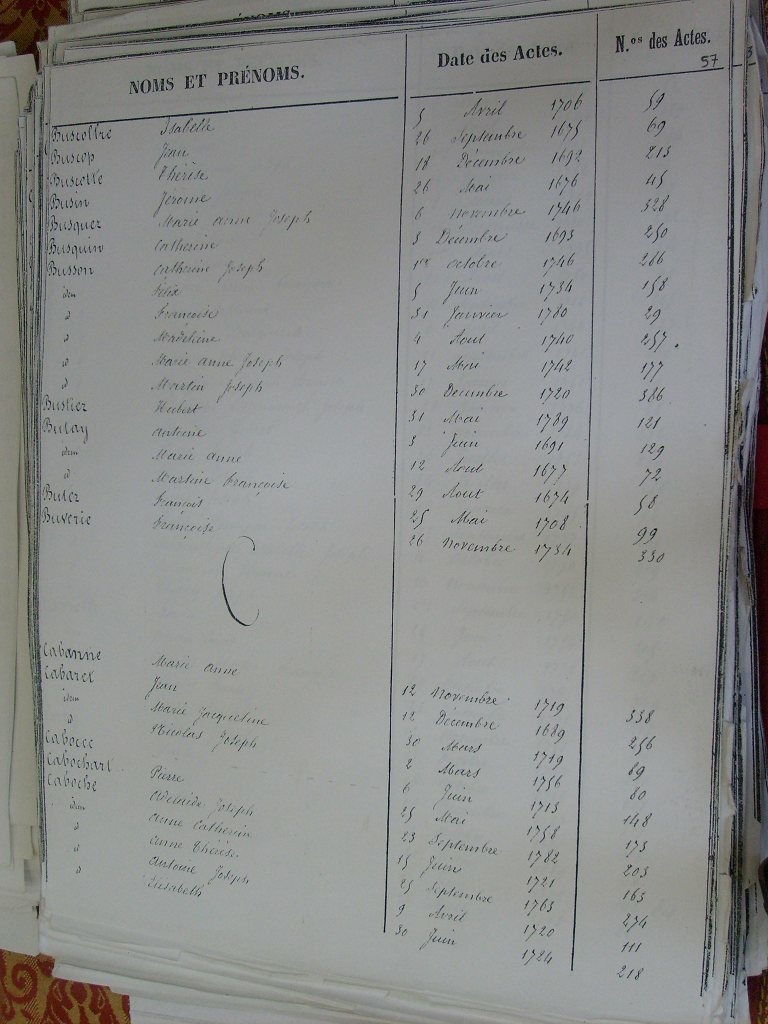 NOMS ET PRÉNOMS. Date des Actes. N.os des Actes.
57
Buscollre Isabelle 5 Avril 1706 59
Buscop Jean 26 Septembre 1675 69
Buscotte Thérèse 18 Décembre 1692 213
Busin Jérome 26 Mai 1676 45
Busquez Marie anne Joseph 6 novembre 1746 328
Busquin Catherine 3 Décembre 1693 250
Busson Catherine Joseph 1er octobre 1746 286
idem Félix 5 Juin 1734 158
d Françoise 31 Janvier 1780 29
d Madeleine 4 Aout 1740 257.
d Marie anne Joseph 17 Mai 1742 177
d Martin Joseph 30 Décembre 1720 386
Bustier Hubert 31 Mai 1789 121
Butay antoine 3 Juin 1691 129
idem Marie anne 12 Aout 1677 72
d Martine Françoise 29 Aout 1674 58
Butez François 25 Mai 1708 99
Buverie Françoise 26 Novembre 1734 330
C
Cabanne Marie anne 12 Novembre 1719 338
Cabaret Jean 12 Décembre 1689 256
idem Marie Jacqueline 30 Mars 1719 89
d Nicolas Joseph 2 Mars 1756 80
Cabocce 6 Juin 1713 148
Cabochart Pierre 25 Mai 1758 173
Caboche Adelaide Joseph 23 Septembre 1782 203
idem anne Catherine 15 Juin 1721 163
d anne Thérèse 25 Septembre 1763 274
d Antoine Joseph 9 Avril 1720 111
d Elisabeth 30 Juin 1724 218